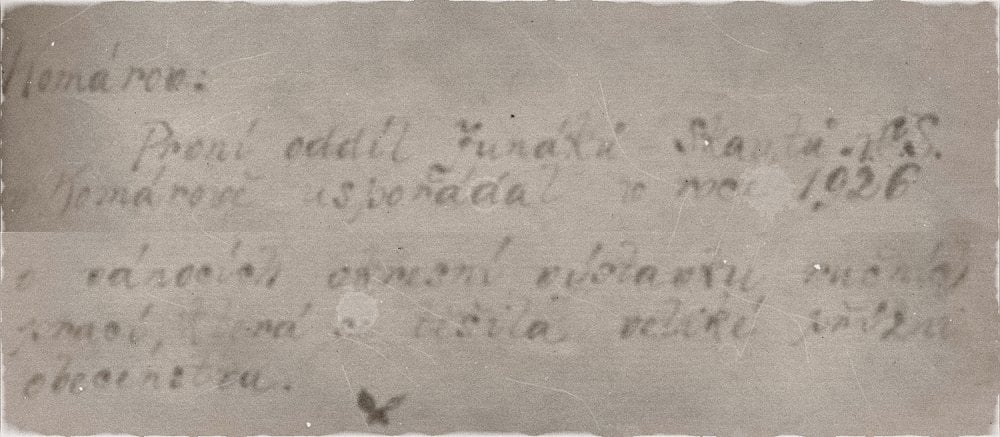 Komárov:
První oddíl Junáků - Skautů R.Č.S.
v Komárově uspořádal v roce 1926
o vánocích okresní výstavku ručních
prací, která se těšila veliké přízni
obecenstva.